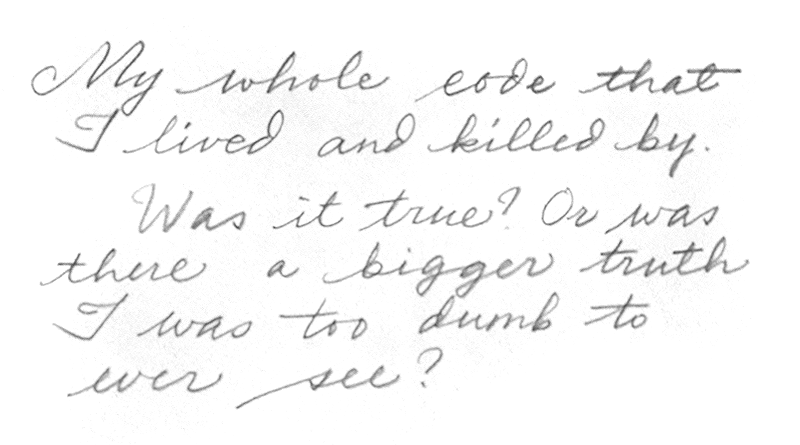 My whole code that
I lived and killed by.
Was it true? Or was
there a bigger truth
I was too dumb to
ever see?